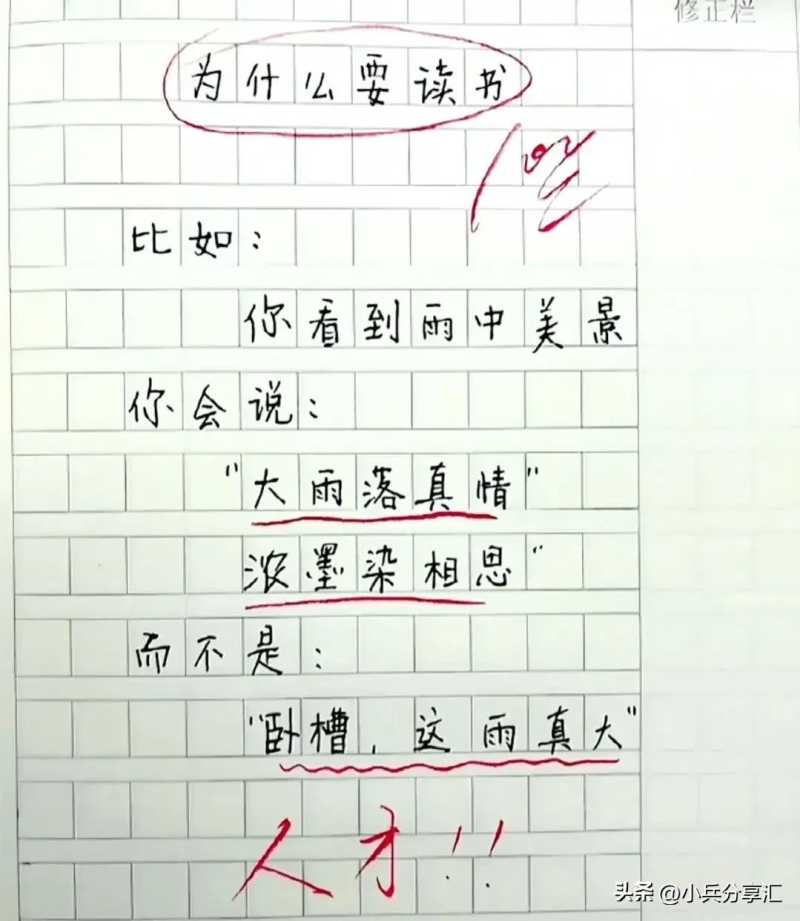 修正栏
为什么要读书
100
比如：
你看到雨中美景
你会说：
“大雨落真情”
浓墨染相思”
而不是：
“卧槽，这雨真大”
人才!!
头条 @小兵分享汇